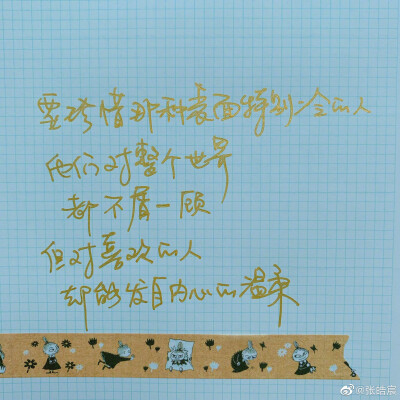 要珍惜那种表面特别冷的人
他们对整个世界
都不屑一顾
但对喜欢的人
却能发自内心的温柔
@张皓宸